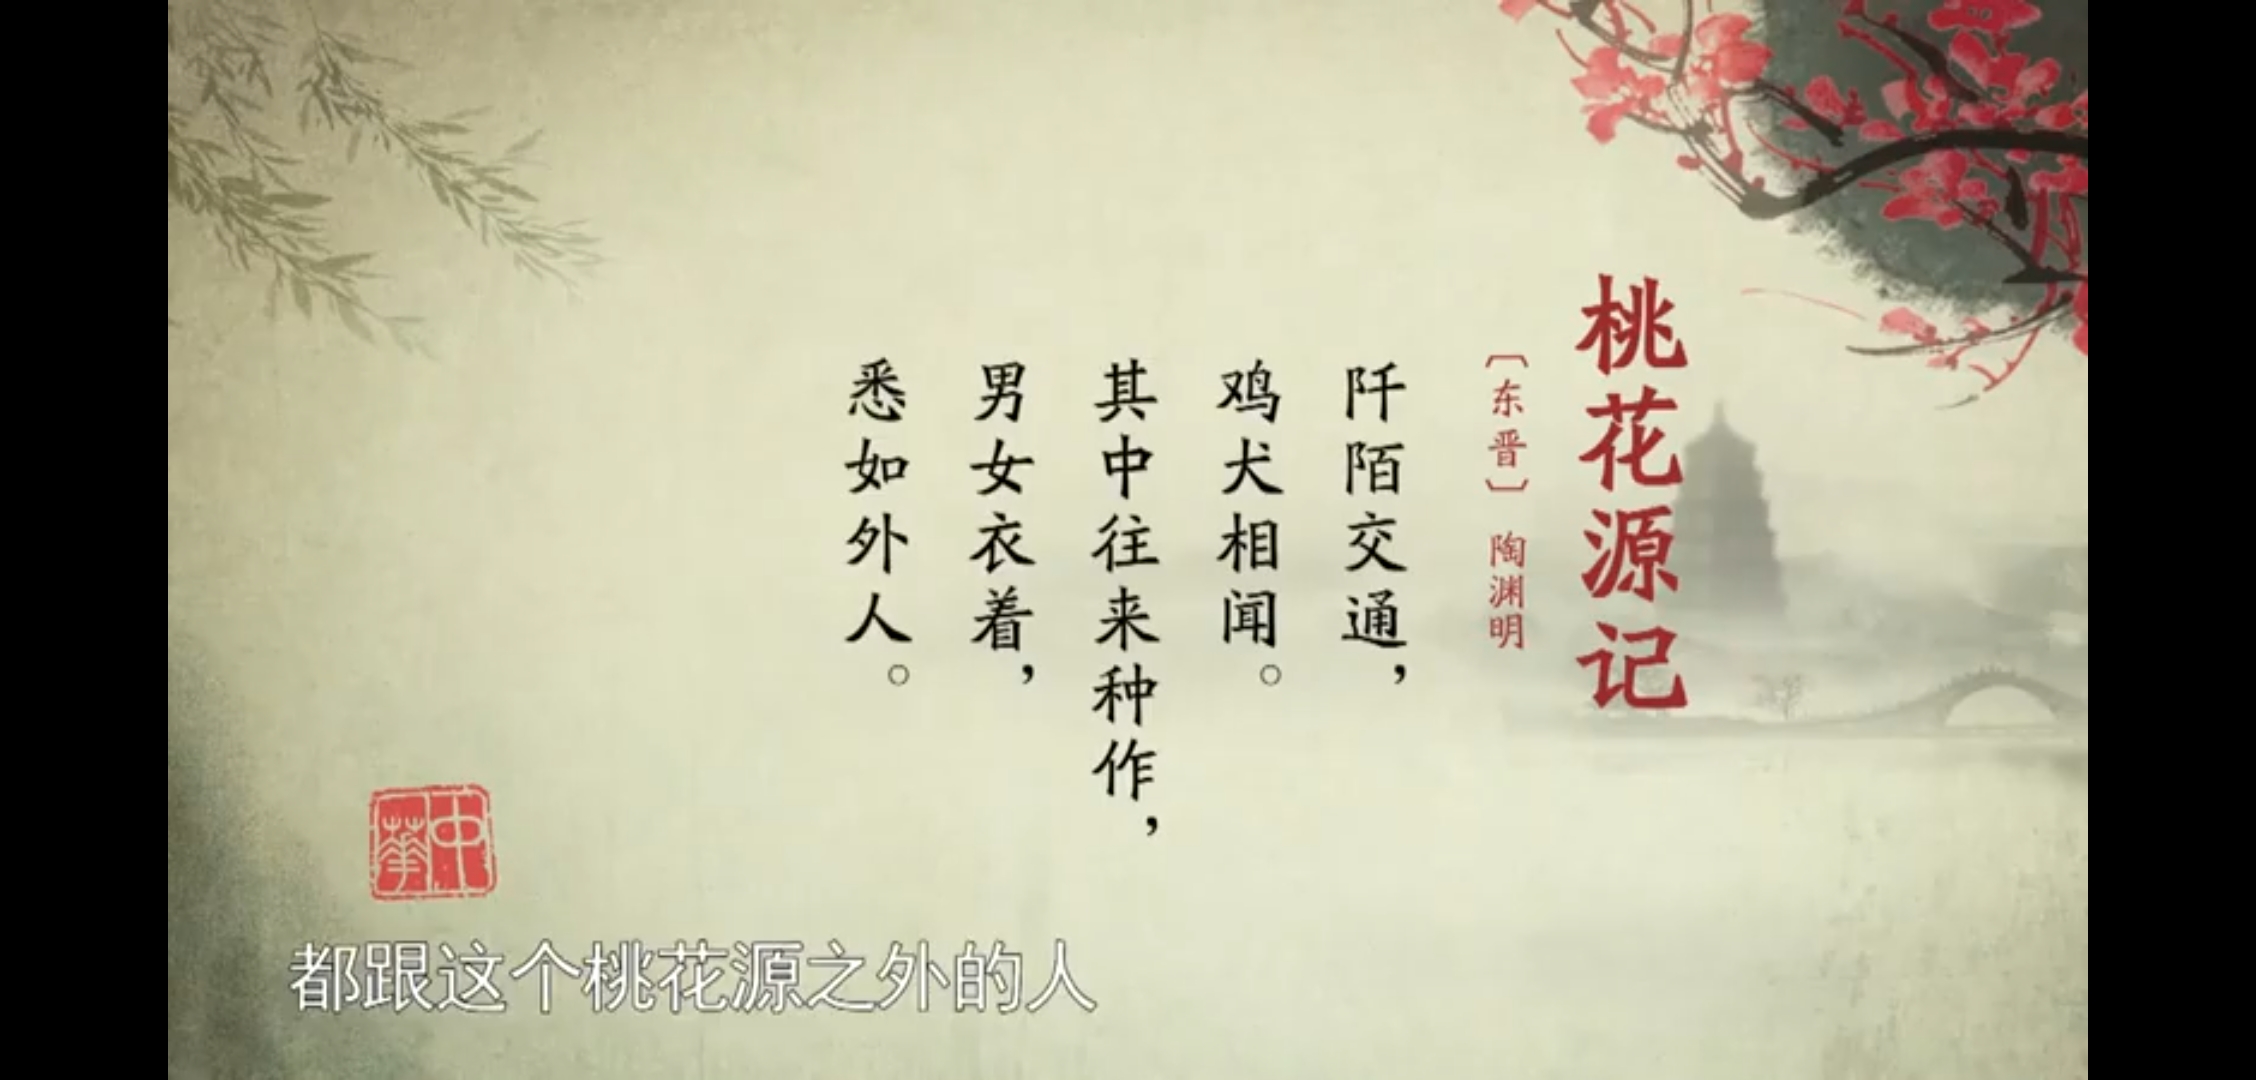 桃花源记
〔东晋〕 陶渊明
阡陌交通，
鸡犬相闻。
其中往来种作，
男女衣着，
悉如外人。
中华
都跟这个桃花源之外的人